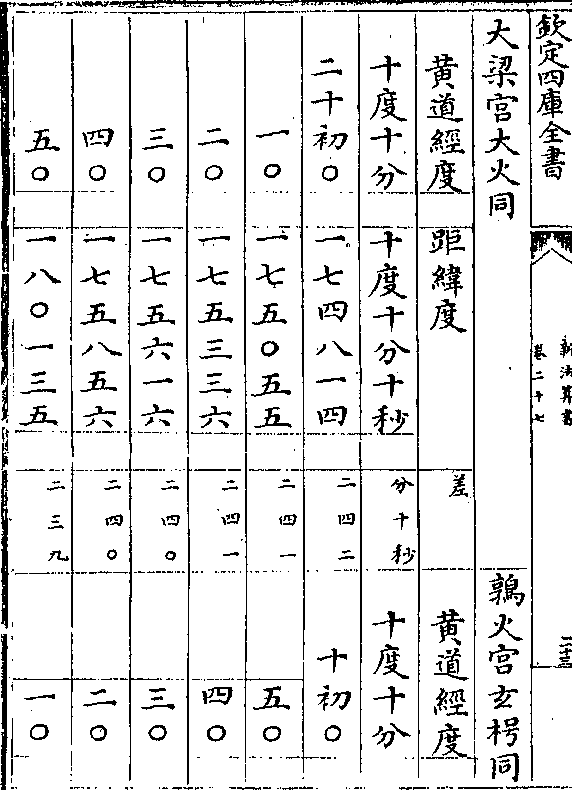 欽定四庫全書
新法算書
卷二十七
二十三
大梁宮大火同 鶉火宮玄枵同
黄道經度 距緯度 差 黄道經度
十度十分 十度十分十秒 分十秒 十度十分
二十初〇 一七四八一四 二四二 十初〇
一〇 一七五〇五五 二四一 五〇
二〇 一七五三三六 二四一 四〇
三〇 一七五六一六 二四〇 三〇
四〇 一七五八五六 二四〇 二〇
五〇 一八〇一三五 二三九 一〇